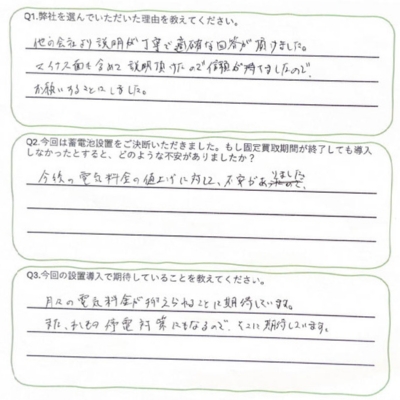 Q1.弊社を選んでいただいた理由を教えてください。
他の会社より説明が丁寧で適確な回答が頂けました。
マイナス面も含めて説明頂けたので信頼が持てましたので、
お願いすることにしました。
Q2.今回は蓄電池設置をご決断いただきました。もし固定買取期間が終了しても導入
しなかったとすると、どのような不安がありましたか？
今後の電気料金の値上げに対して、不安がありました
Q3.今回の設置導入で期待していることを教えてください。
月々の電気料金が抑えられることに期待しています。
また、停電対策にもなるので、そこに期待しています。